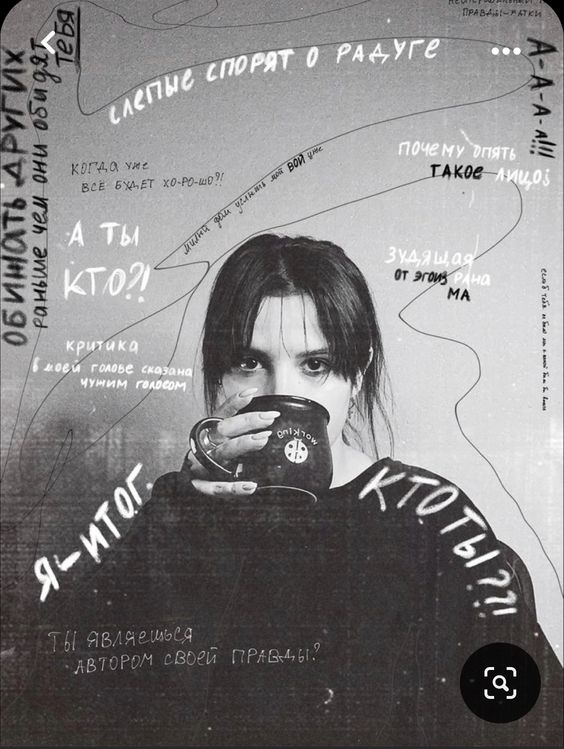 ПРАВДЫ-МАТКИ
ОБИЖАТЬ ДРУГИХ
раньше чем они обидят
тебя
слепые спорят о радуге
А-А-А-А!!!
КОГДА уже
ВСЁ БУДЕТ ХО-РО-ШО?!
милый дом услышь мой ВОЙ уже
почему опять
ТАКОЕ лицо?
А ТЫ
КТО?!
Зудящая
от эгоизма рана
критика
в моей голове сказана
чужим голосом
working
Я-ИТОГ.
КТО ТЫ??!
ТЫ ЯВЛЯЕШЬСЯ
АВТОРОМ СВОЕЙ ПРАВДЫ?